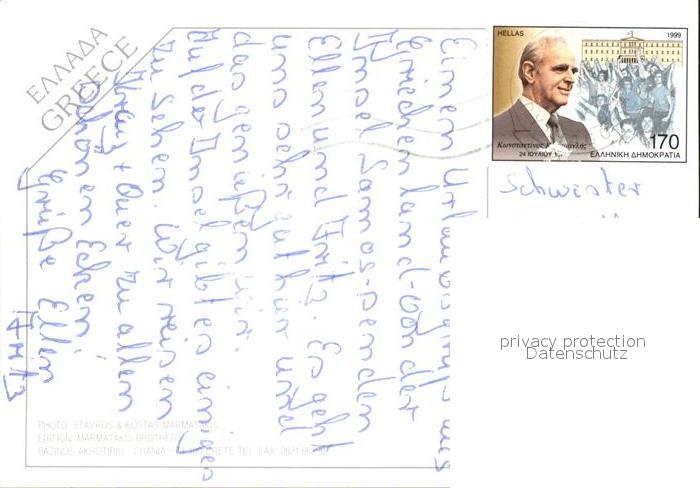 ΕΛΛΑΔΑ
GREECE
HELLAS
1999
Κωνσταντίνος
24 ΙΟΥΛΙΟΥ
170
ΕΛΛΗΝΙΚΗ ΔΗΜΟΚΡΑΤΙΑ
Schwester
Einen Urlaubsgruß aus
Griechenland - von der
Insel Samos - senden
Ellen und Fritz. Es geht
uns sehr gut hier und
das genießen wir.
Auf der Insel gibt es einiges
zu sehen. Wir reisen
Kreuz + Quer zu allen
schönen Ecken.
Grüße Ellen
Fritz
PHOTO: STAVROS & KOSTAS MARMATAKIS
EDITION: MARMATAKIS BROTHERS
PAZINOS-AKROTIRI CHANIA CRETE TEL. FAX: 0821
privacy protection
Datenschutz